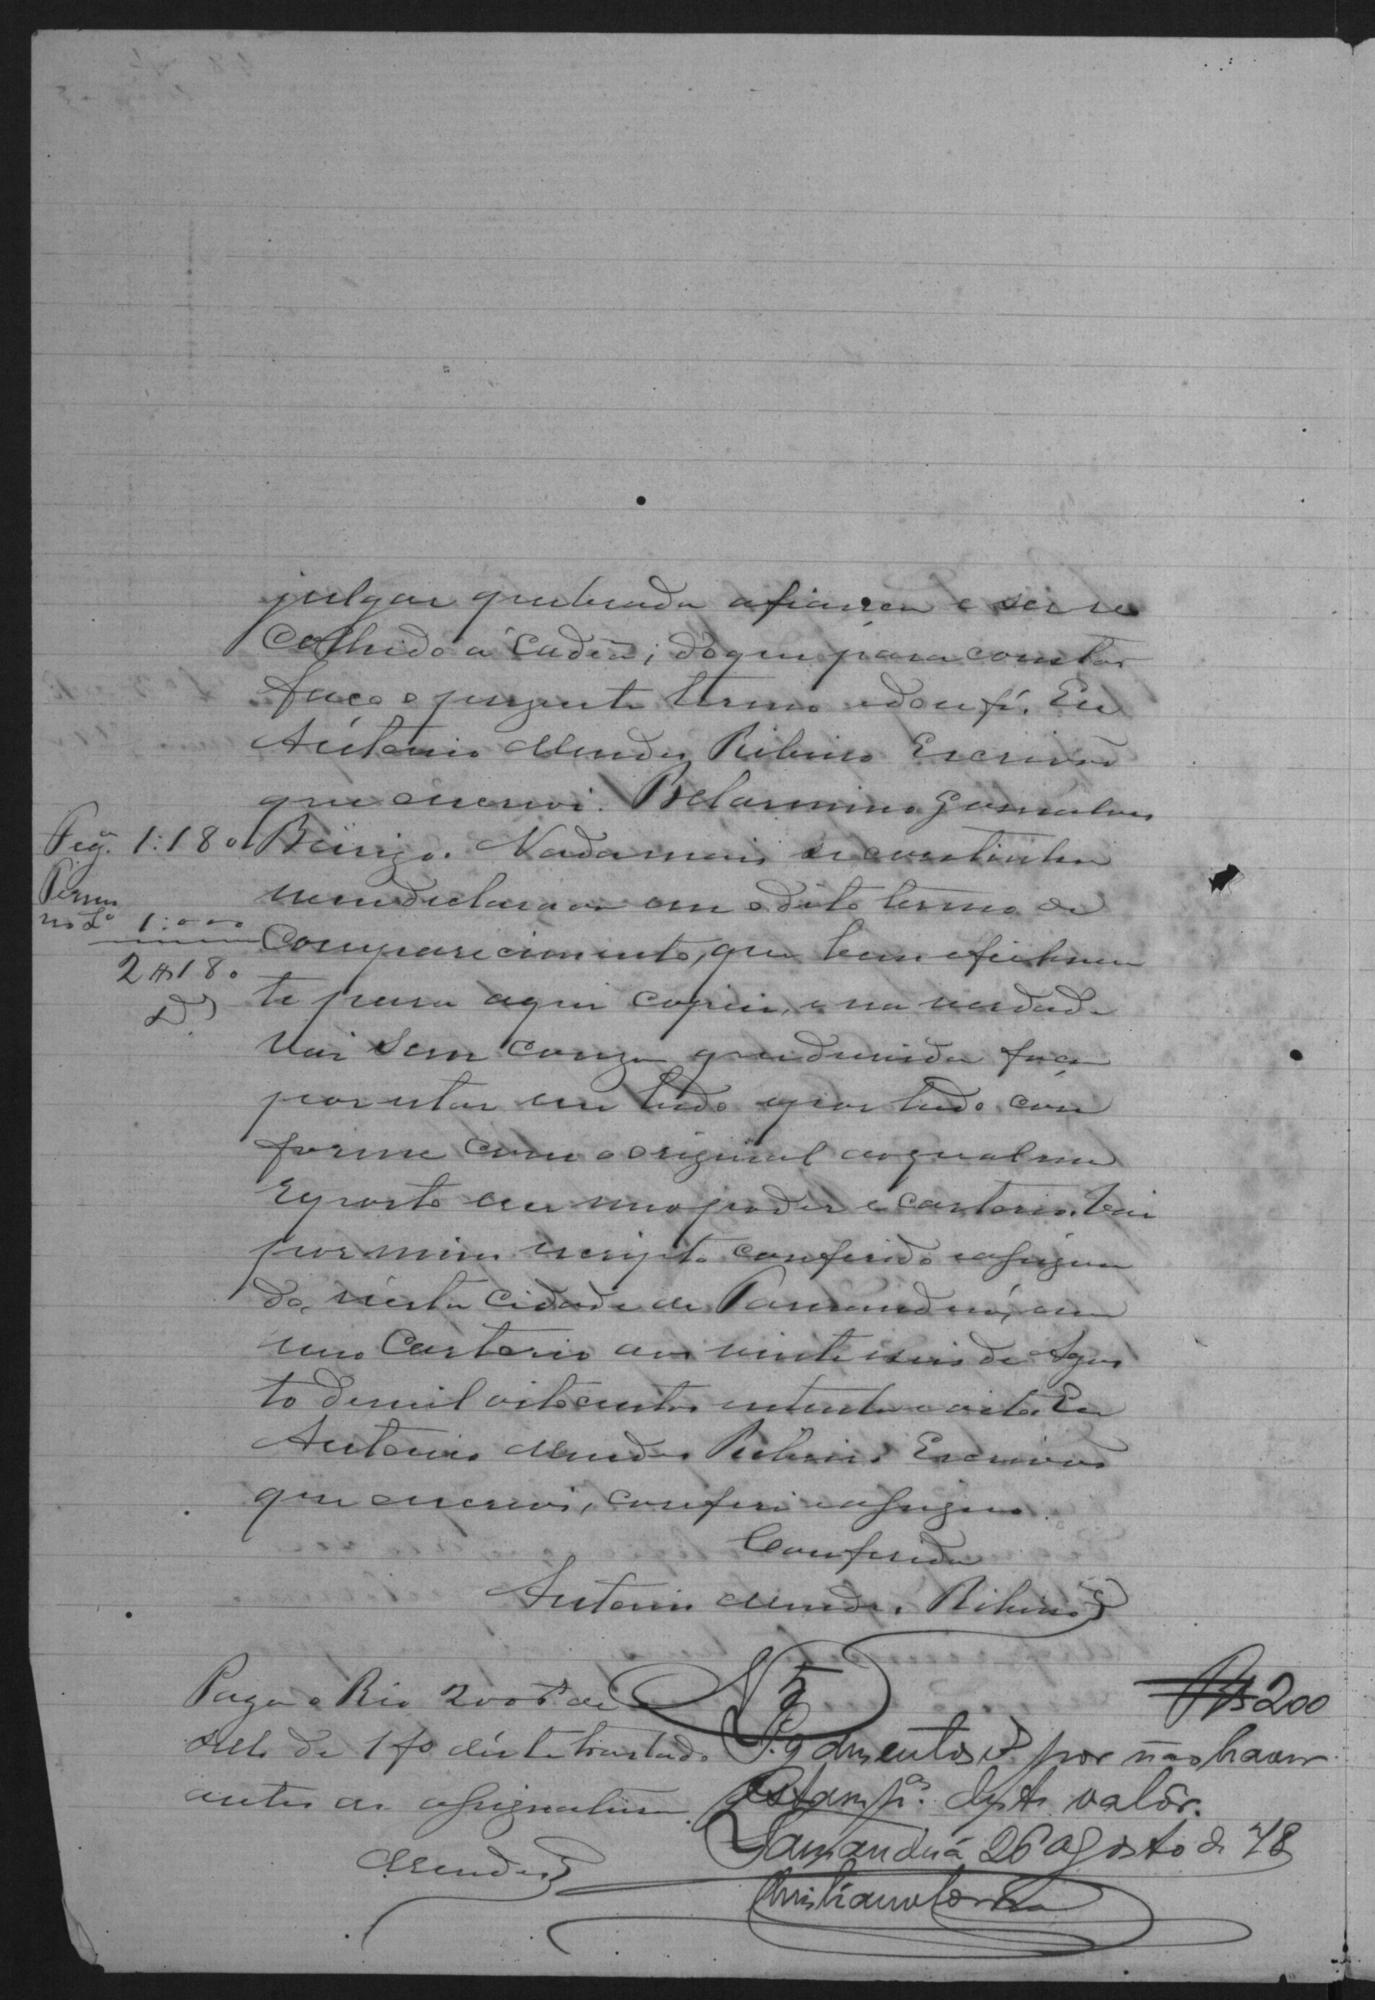 julgar quebrada afiança e ser re
colhido á Cadêa; dóque para constar
faço o prezente termo edoufé. Eu
Antonio Mendes Ribeiro Escrivão
que escrevi. Belarmino Gonsalves
Feg. 1:180
Bürigo. Nadamais se continha
Termo
no Lº 1:000
2$180
nem declarava em o dito termo de
Comparecimento, que bem efielmen
te para aqui copiei, e na verdade
vai sem couza que duvida faça
por estar em tudo epor tudo con
forme com o original aoqual me
reporto em meo poder e cartorio. Vai
por mim escripto conferido eassigna
do, nésta Cidade de Tamanduá, em
meo Cartorio aos vinte eseis de Agos
to demil oitocentos setenta e oito. Eu
Antonio Mendes Ribeiro Escrivão
que escrevi, conferi eassigno.
Conferido
Antonio Mendes Ribeiro
Paga o Rio 200 rs de
sello de 1 fª déste traslado
antes da assignatura.
Mendes
Nº 5 Rs 200
P. g dusentos rs por não haver
estampª deste valôr.
Tamanduá 26 agosto de 78